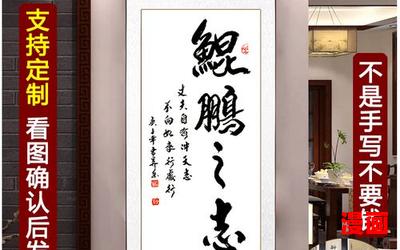 支持定制
看图确认后发
鲲鹏之志
丈夫自有冲天志
不向如来行处行
不是手写不要钱